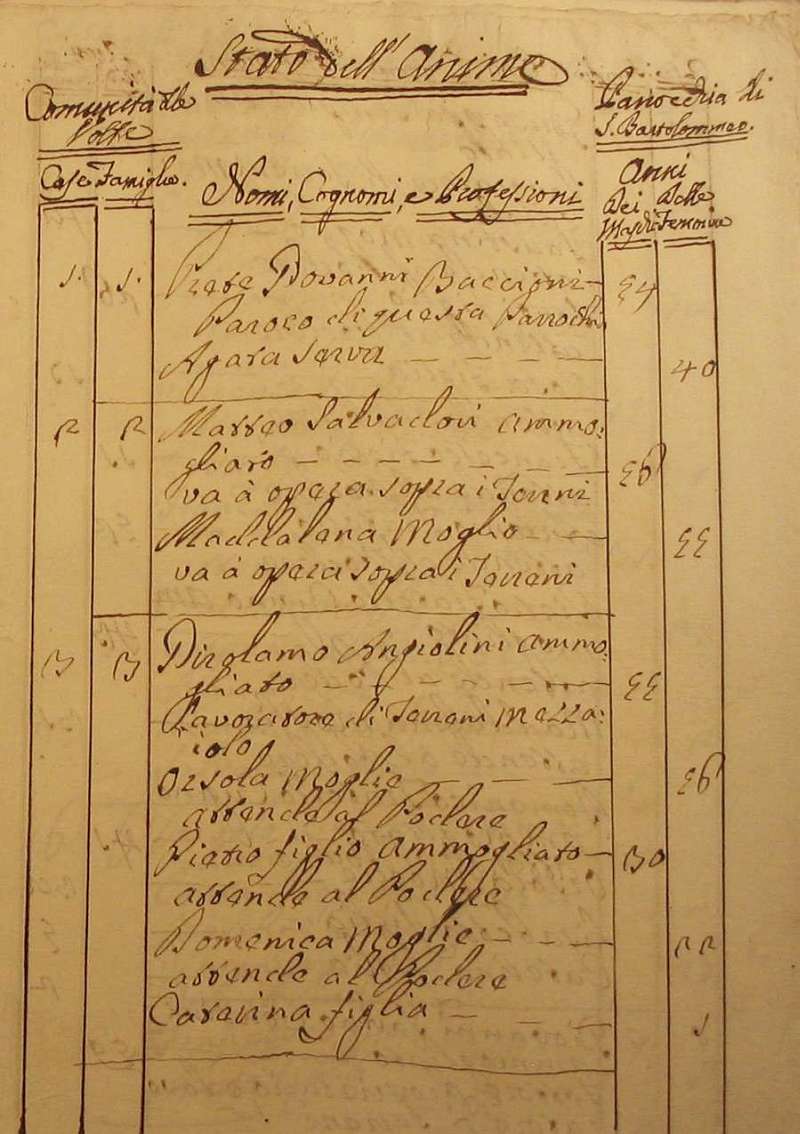 Stato dell' Anime
Comunità delle
Parrocchia di
S. Bartolommeo.
Case Famiglie.
Nomi, Cognomi, e Professioni
Anni
Dei Delle
Maschi Femmine
1. 1. Prete Giovanni Baccioni 54
Paroco di questa Parrochia
Agata Serva 40
2 2 Matteo Salvadori Ammo:
gliato 56
va à opera sopra i Terreni
Maddalena Moglie 55
va à opera sopra i Terreni
3 3 Girolamo Angiolini Ammo:
gliato 55
Lavoratore di Terreni Mezza:
iolo
Orsola Moglie 56
attende al Podere
Pietro figlio Ammogliato 30
attende al Podere
Domenica Moglie 22
attende al Podere
Caterina figlia 1